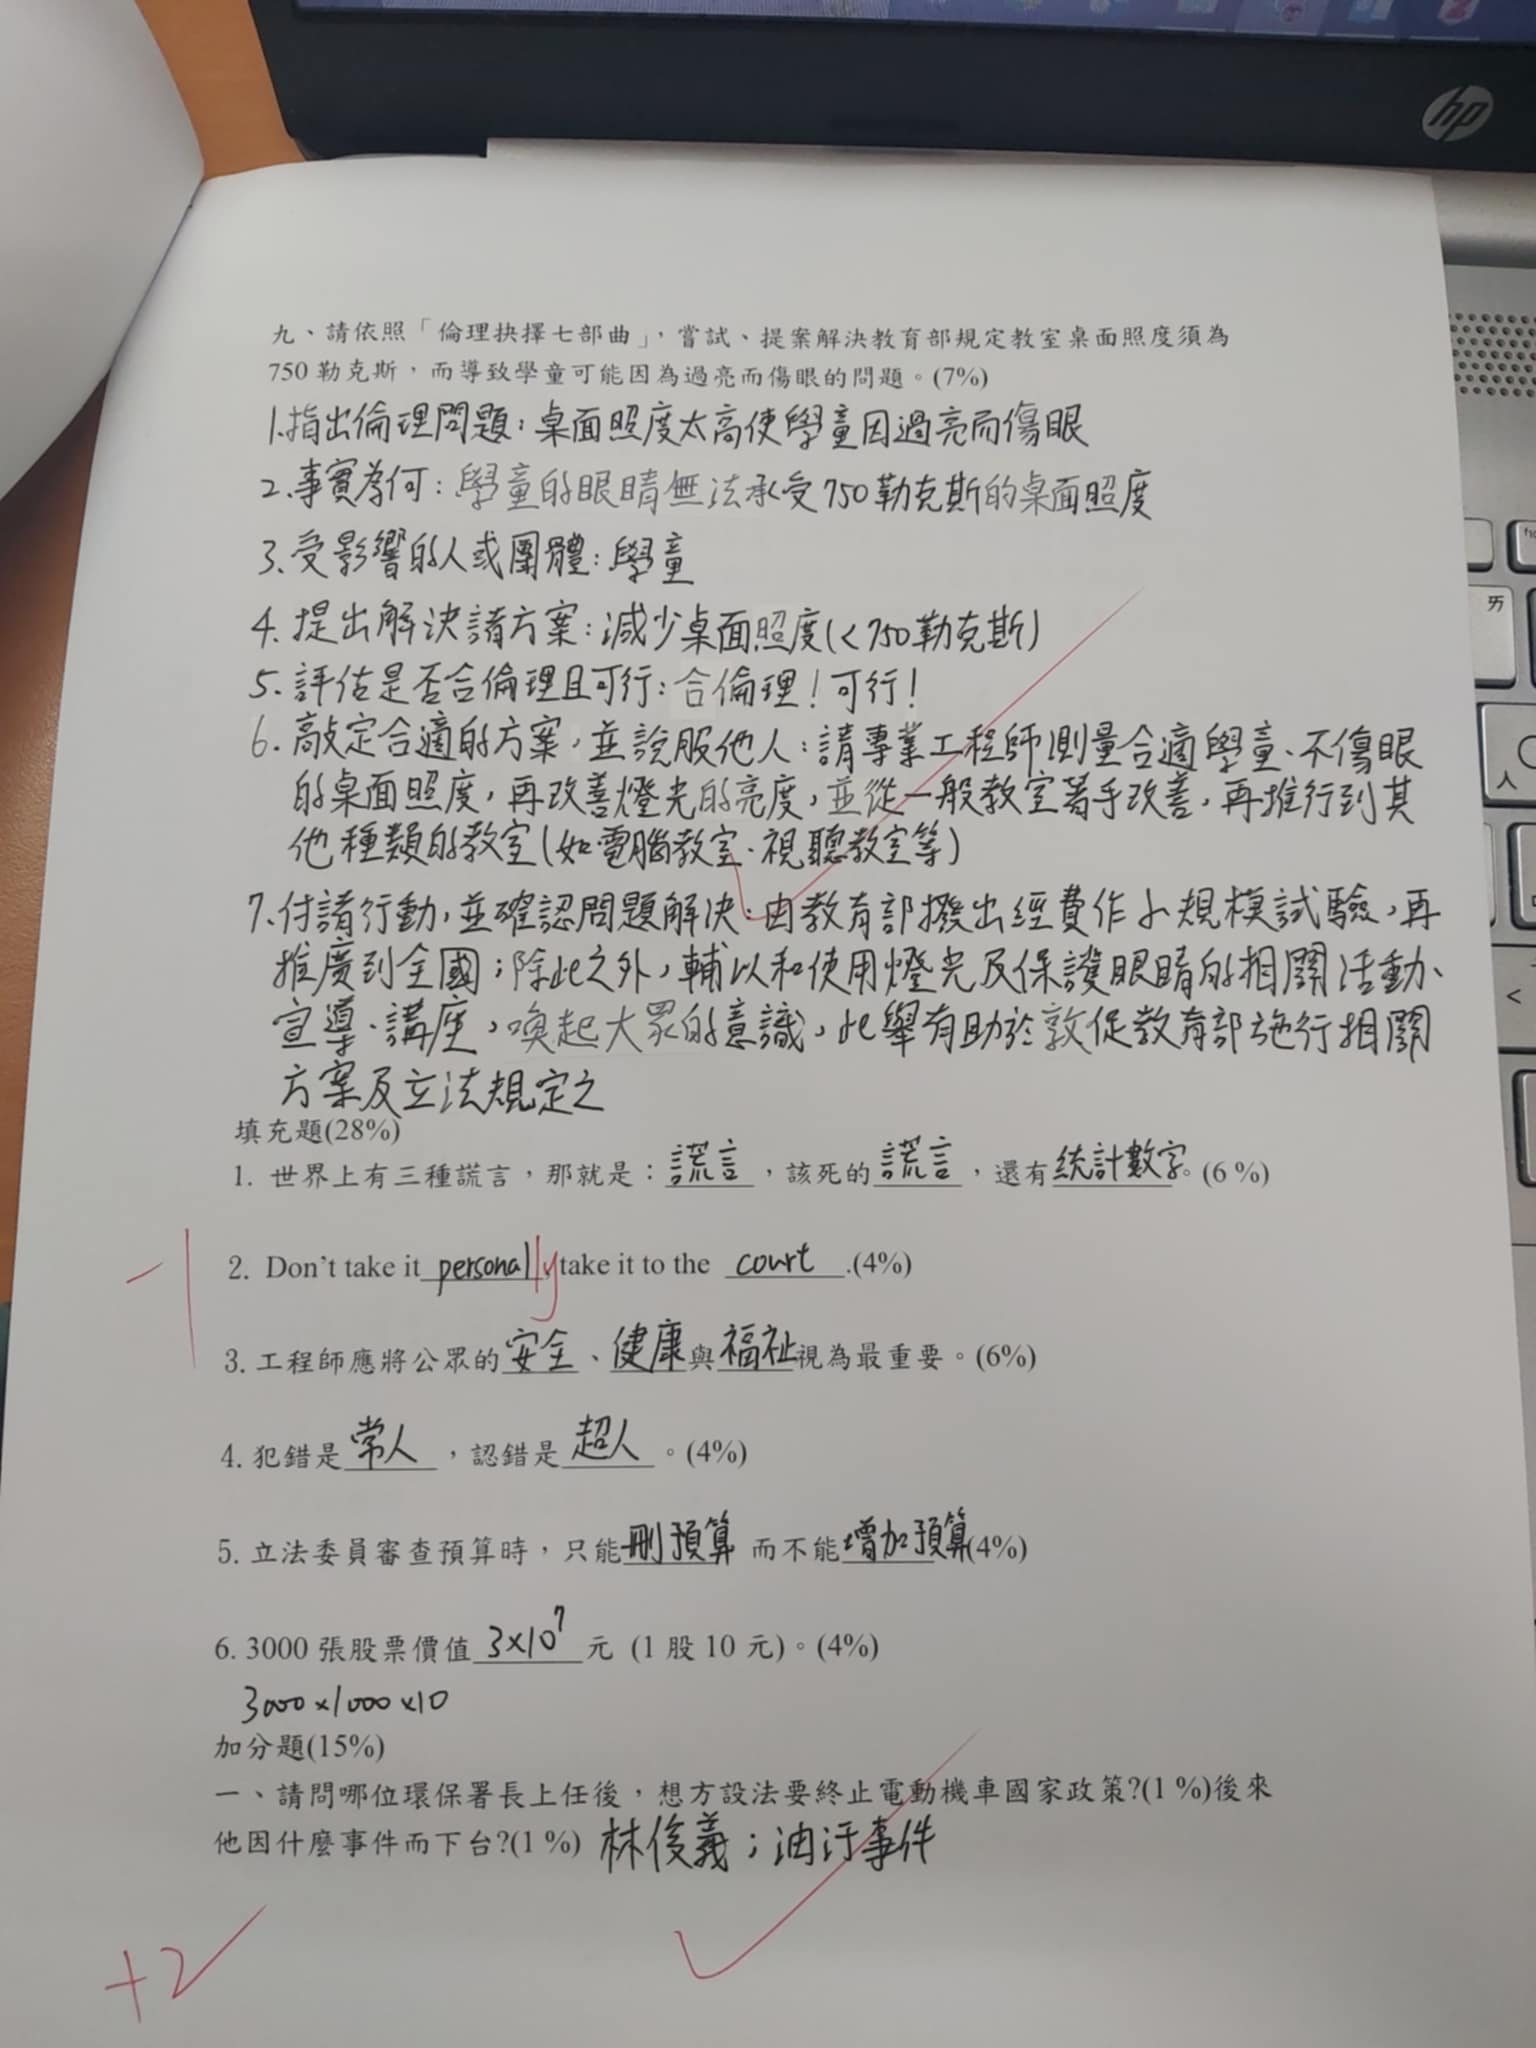 hp
九、請依照「倫理抉擇七部曲」,嘗試、提案解決教育部規定教室桌面照度須為
750 勒克斯,而導致學童可能因為過亮而傷眼的問題。(7%)
1.指出倫理問題:桌面照度太高使學童因過亮而傷眼
2.事實為何:學童的眼睛無法承受750勒克斯的桌面照度
3.受影響的人或團體:學童
4.提出解決諸方案:減少桌面照度(<750勒克斯)
5.評估是否合倫理且可行:合倫理!可行!
6.敲定合適的方案,並說服他人:請專業工程師測量合適學童、不傷眼
的桌面照度,再改善燈光的亮度,並從一般教室著手改善,再推行到其
他種類的教室(如電腦教室、視聽教室等)
7.付諸行動,並確認問題解決:由教育部撥出經費作小規模試驗,再
推廣到全國;除此之外,輔以和使用燈光及保護眼睛的相關活動、
宣導、講座,喚起大眾的意識,此舉有助於敦促教育部施行相關
方案及立法規定之
填充題(28%)
1. 世界上有三種謊言,那就是:謊言,該死的謊言,還有統計數字。(6 %)
-1
2. Don't take it personally, take it to the court.(4%)
3. 工程師應將公眾的安全、健康與福祉視為最重要。(6%)
4. 犯錯是常人,認錯是超人。(4%)
5. 立法委員審查預算時,只能刪預算 而不能增加預算(4%)
6. 3000 張股票價值3×10⁷元 (1 股 10 元)。(4%)
3000×1000×10
加分題(15%)
一、請問哪位環保署長上任後,想方設法要終止電動機車國家政策?(1 %)後來
他因什麼事件而下台?(1 %) 林俊義;油汙事件
+2